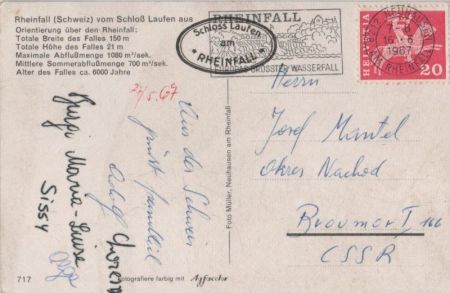 Rheinfall (Schweiz) vom Schloß Laufen aus
Orientierung über den Rheinfall:
Totale Breite des Falles 150 m
Totale Höhe des Falles 21 m
Maximale Abflußmenge 1080 m³/sek.
Mittlere Sommerabflußmenge 700 m³/sek.
Alter des Falles ca. 6000 Jahre
RHEINFALL
Schloss Laufen
am
RHEINFALL
EUROPAS GRÖSSTER WASSERFALL
1967
AM RHEINFALL
HELVETIA
20
Herrn
Josef Mantel
Okres Nachod
Broumov I 166
ČSSR
Aus der Schweiz
grüsst
Maria-Luise
Sissy
Foto Müller, Neuhausen am Rheinfall
717
Fotografiere farbig mit Agfacolor